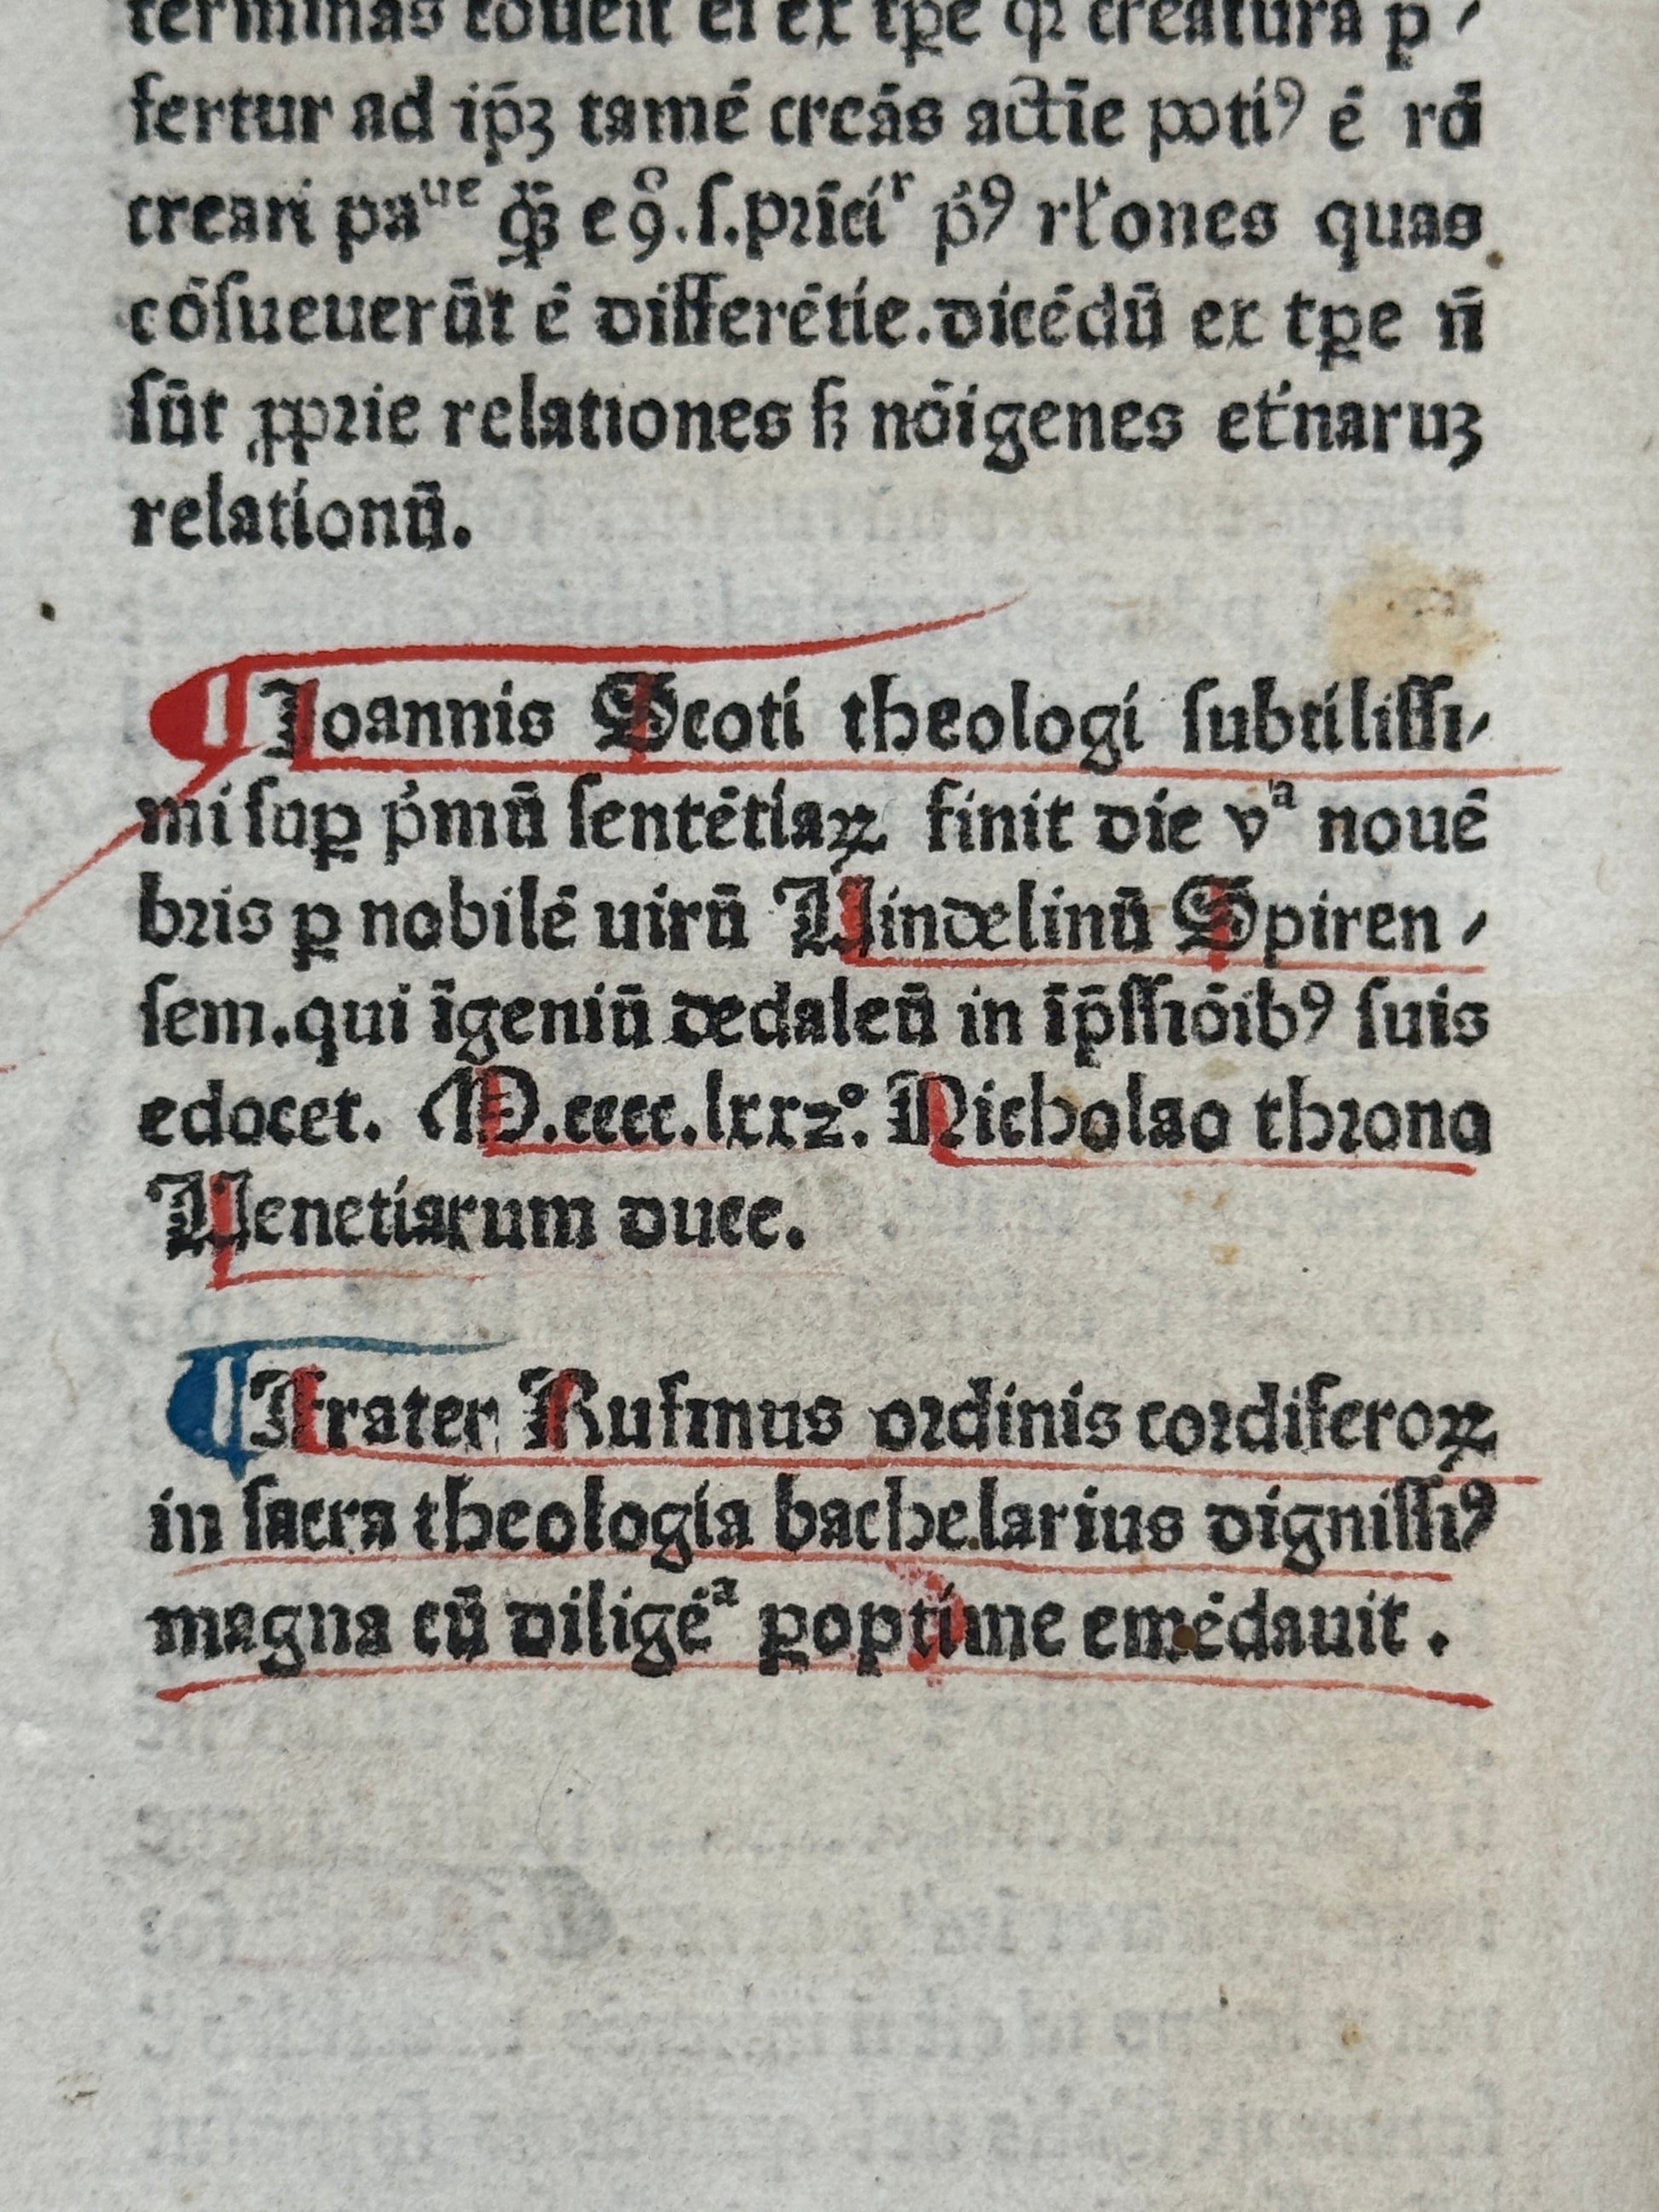 terminas cōueīt ei ex tꝑe qꝛ creatura ꝑ⸗
fertur ad ip̄ꝫ tamē creās actīe poti⁹ ē rō
creari paᵘᵉ ꝙ̈ꝫ e⁹.ſ.pꝛīciʳ p̄⁹ rłones quas
cōſueuerūt ē differētie.dicēdū ex tꝑe n̄
ſūt ꝓpꝛie relationes ꝭꝫ nōigenes et̄naruꝫ
relationū.
¶Ioannis Scoti theologi ſubtiliſſi⸗
mi ſuꝑ p̄mū ſentētiaꝝ finit die vᵃ nouē
bꝛis ꝑ nobilē uirū Vindelinū Spiren⸗
ſem.qui īgeniū dedaleū in īp̄ſſiōib⁹ ſuis
edocet. M.cccc.lxxꝛº. Nicholao thꝛono
Venetiarum duce.
¶Frater Rufinus oꝛdinis coꝛdiferoꝝ
in ſacra theologia bachelarius digniſſi⁹
magna cū diligēᵃ ꝑoptime emēdauit.